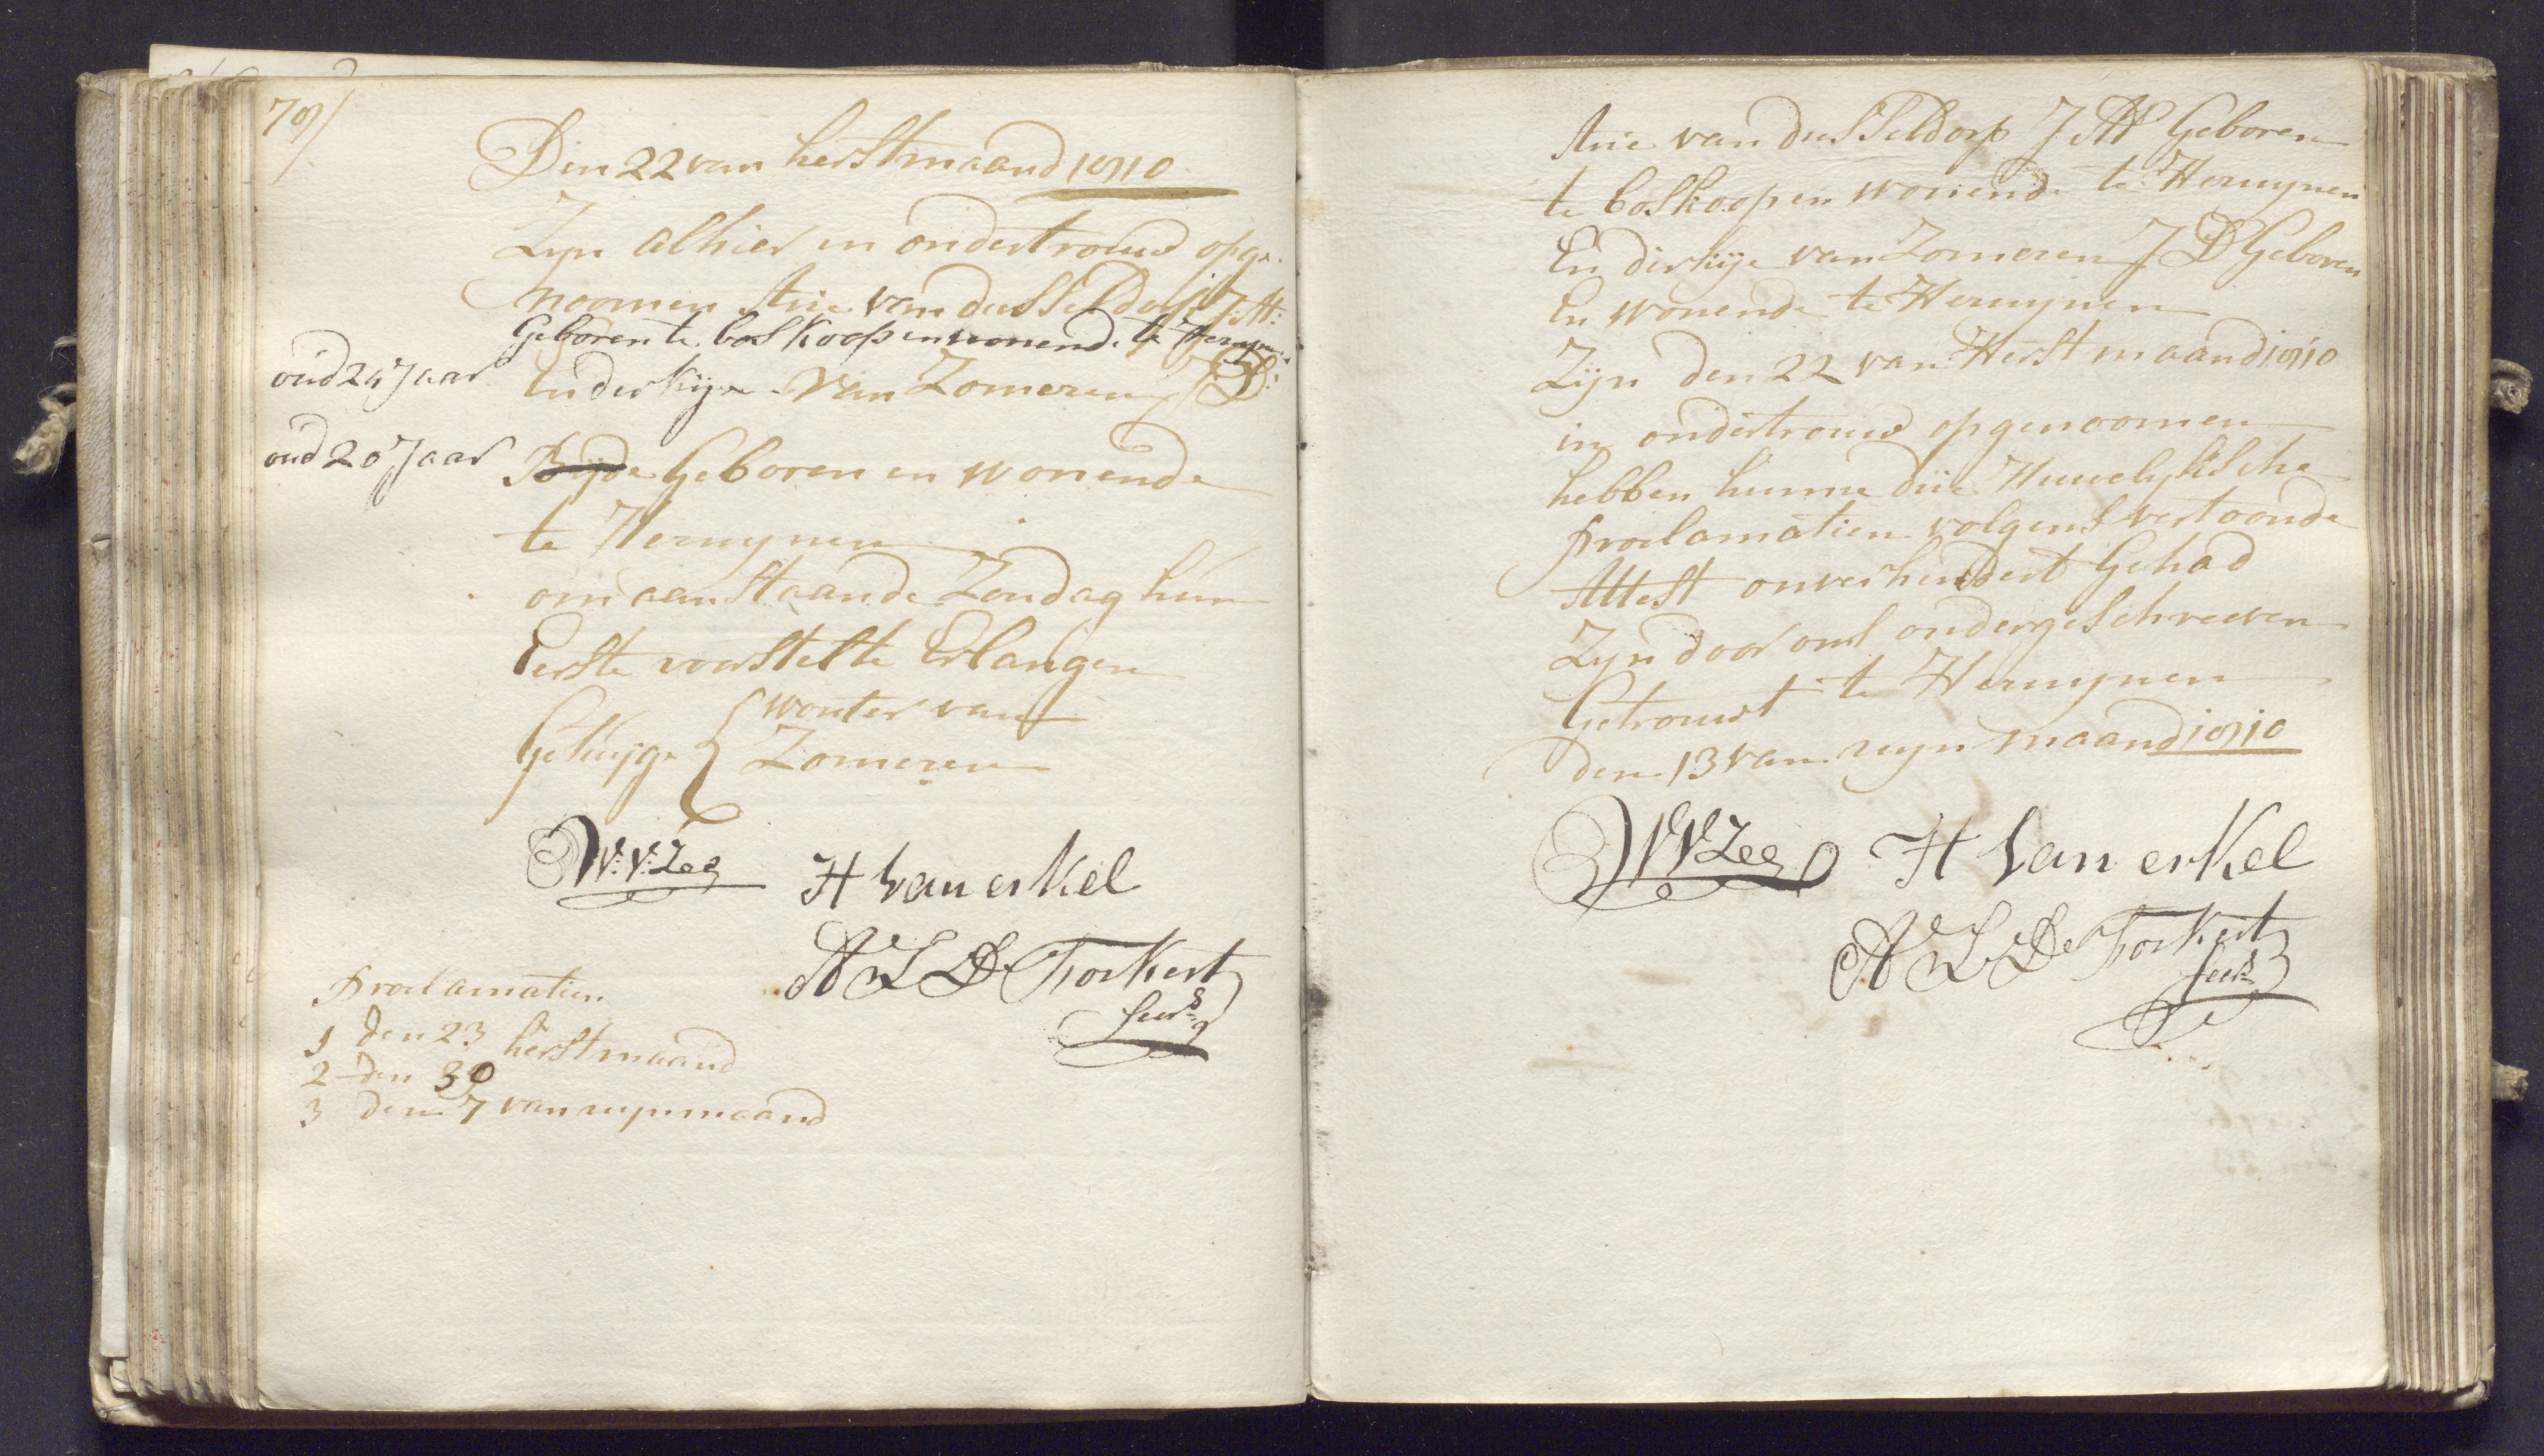 78/
Den 22 van herfstmaand 1810
Zyn alhier in ondertrouw opge-
noomen Arie van dusseldorp J:M:
Geboren te boskoop en wonende te Herwynen
oud 24 Jaar
En derkije van Zomeren J D:
oud 20 Jaar
Byde Geboren en wonende
te Herwynen
om aanstaande Zondag hun
Eerste voorstelte Erlangen
Getuyge { wouter van
Zomeren
W:V:Zee
H van erkel
A L De Forkert
Secrs
Proclamatien
1 den 23 herfstmaand
2 den 30
3 den 7 van wynmaand
Arie van dusseldorp J M Geboren
te boskoop en wonende te Herwynen
En derkije van Zomeren J D Geboren
En wonende te Herwynen
Zijn den 22 van Herfstmaand 1810
in ondertrouw opgenoomen
hebben hunne drie Huwelyksche
Proclamatien volgens vertoonde
Attest onverhindert Gehad
Zyn door ons ondergeschreeven
Getrouwt te Herwynen
den 13 van wynmaand 1810
W V Zee
H van erkel
A L De Forkert
Secrs